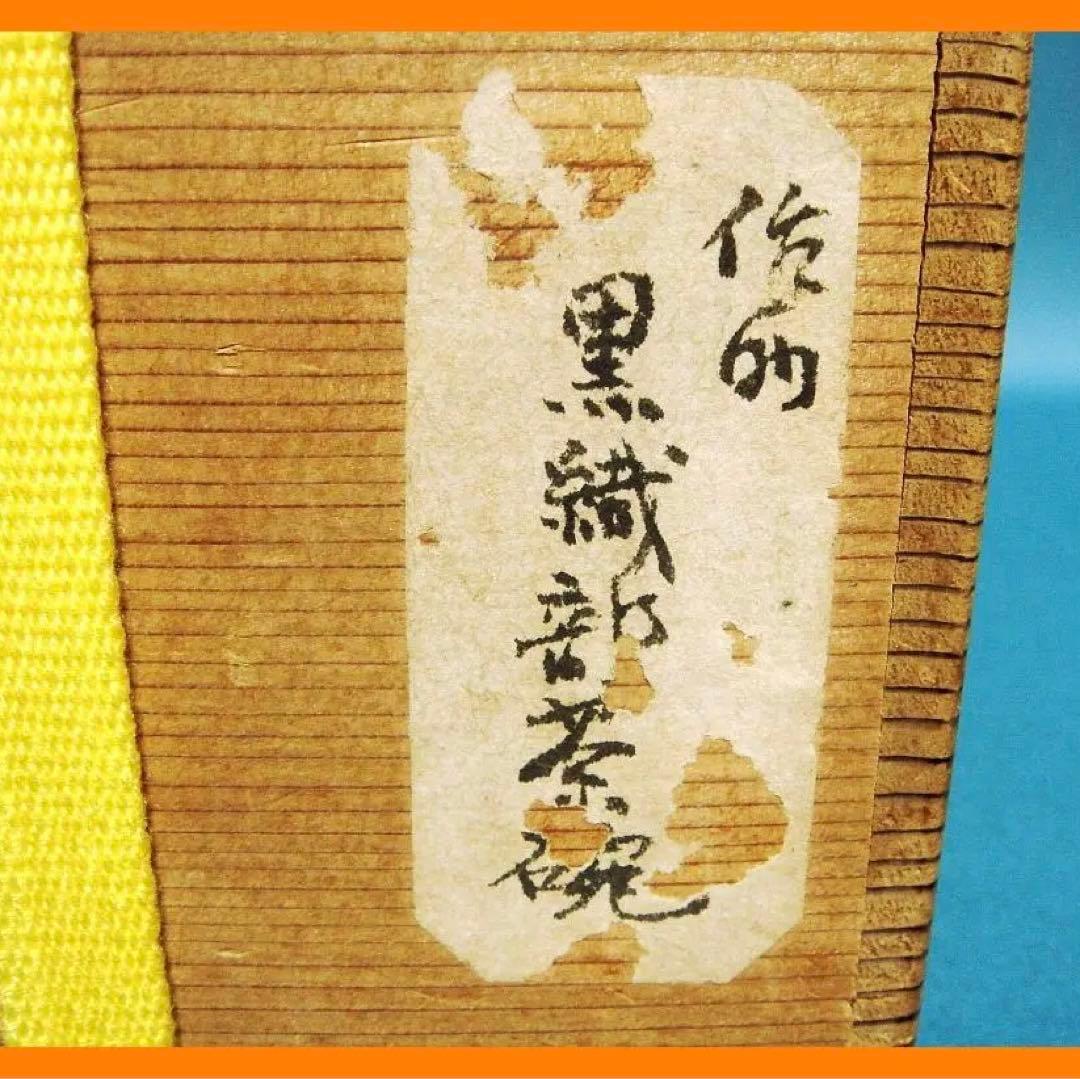 佐助
黒織部茶碗